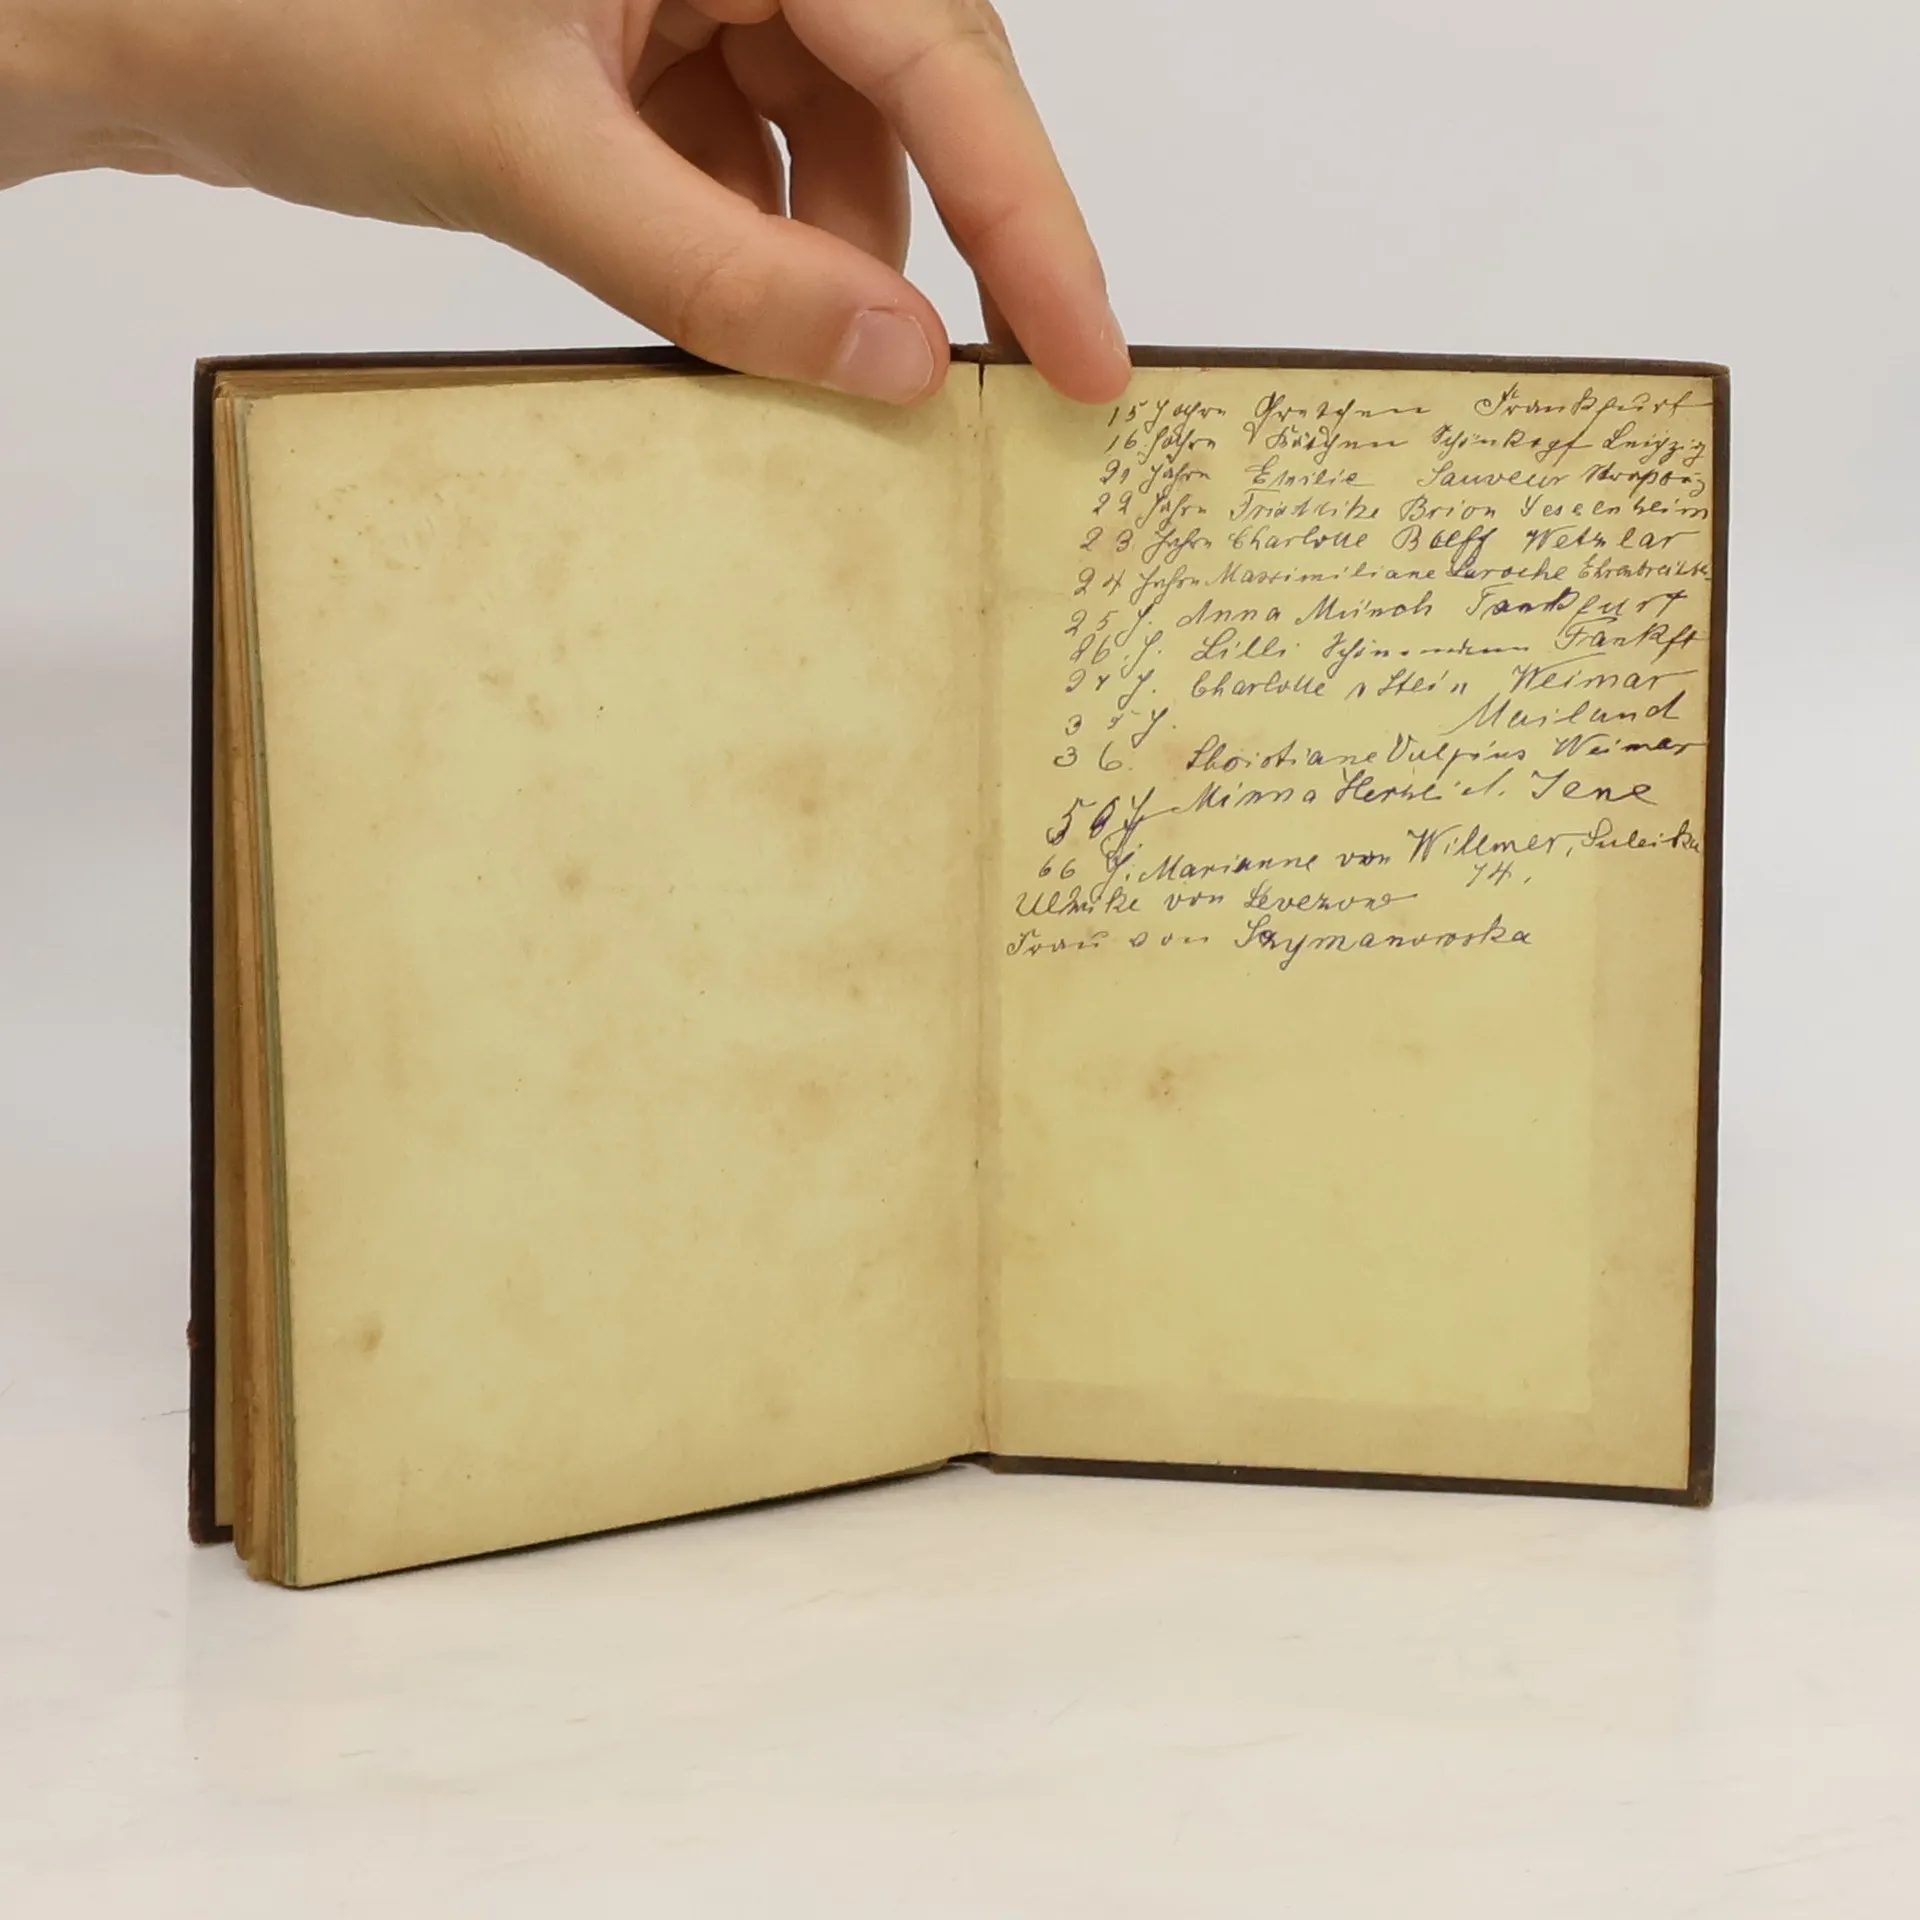 15 Jahre Gretchen Frankfurt
16 Jahre Käthchen Schönkopf Leipzig
21 Jahre Emilie Sauveur
22 Jahre Friedrike Brion Sesenheim
23 Jahre Charlotte Buff Wetzlar
24 Jahre Maximiliane Laroche
25 J. Anna Münch Frankfurt
26. J. Lilli Schönemann Frankft
27 J. Charlotte v Stein Weimar
J. Mailand
36. Christiane Vulpius Weimar
J Minna Herzlieb. Jena
66 J. Marianne von Willmer, Suleika
74.
Ulrike von Levezow
Frau von Szymanowska